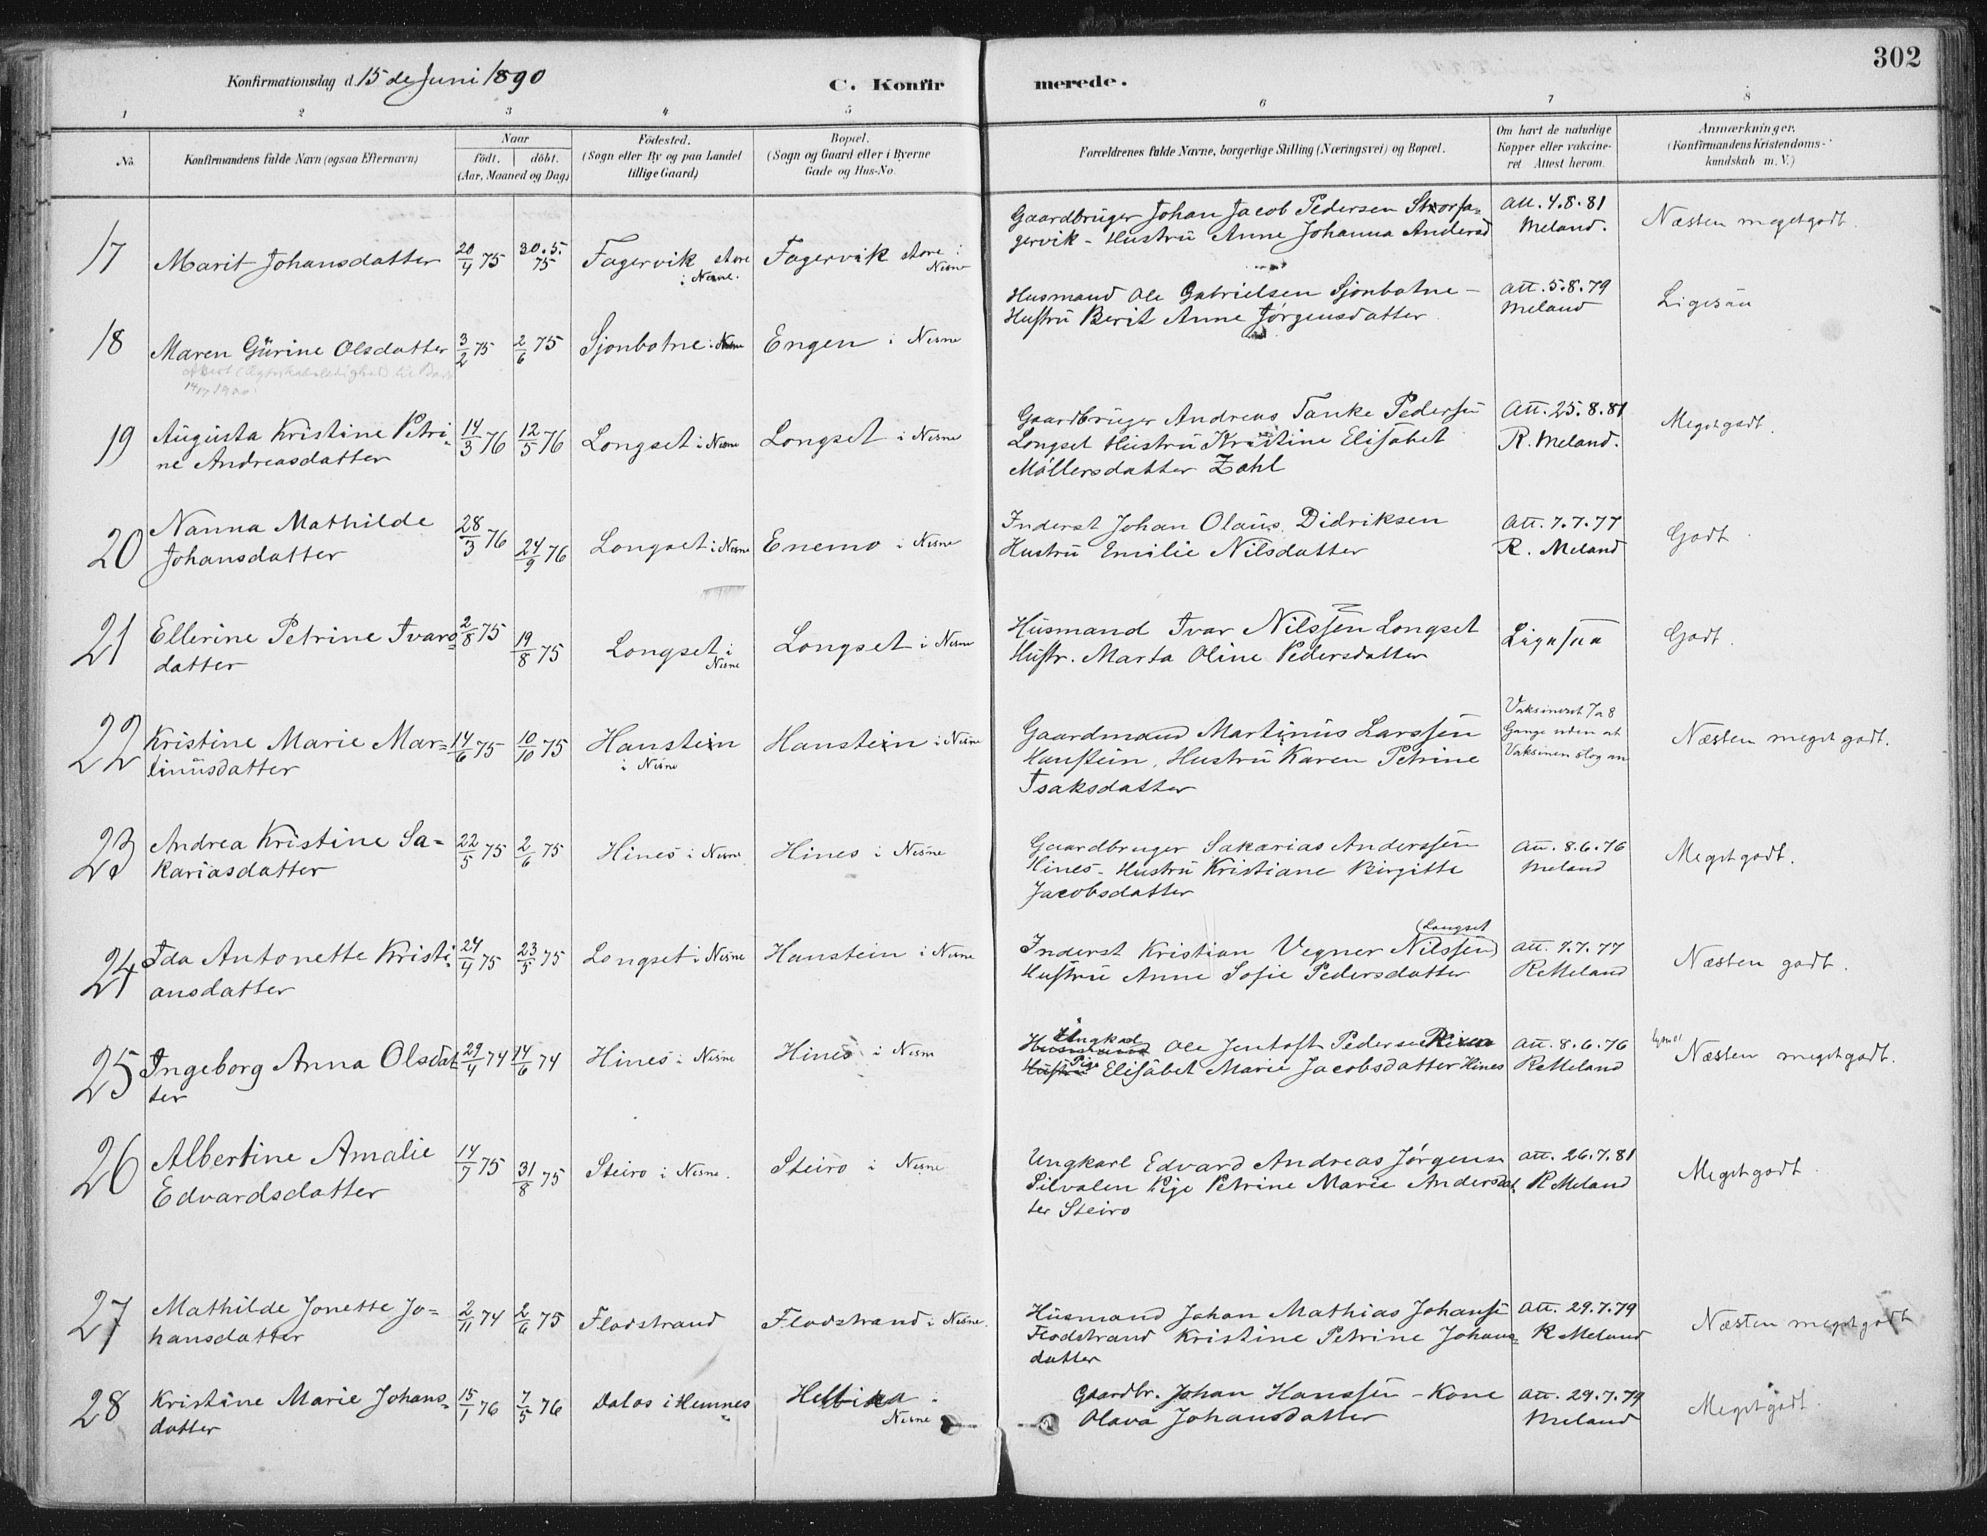 302
Konfirmationsdag d. 15 de Juni 1890
C. Konfirmerede.
1 2 3 4 5 6 7 8
No.
Konfirmandens fulde Navn (ogsaa Efternavn)
Naar
födt. döbt.
(Aar, Maaned og Dag)
Födested.
(Sogn eller By og paa Landet
tillige Gaard)
Bopæl.
(Sogn og Gaard eller i Byerne
Gade og Hus-No.
Forældrenes fulde Navne, borgerlige Stilling (Næringsvei) og Bopæl.
Om havt de naturlige
Kopper eller vakcine-
ret Attest herom.
Anmærkninger.
(Konfirmandens Kristendoms-
kundskab m. V.)
17 Marit Johansdatter 20/4 75 30.5.75 Fagervik store i Nesne. Fagervik store i Nesne
Gaardbruger Johan Jacob Pedersen Storfa-
gervik - Hustru Anne Johanna Andersd
Att. 4.8.81
Meland.
Næsten meget godt.
18 Maren Gurine Olsdatter 3/2 75 2/6 75 Sjonbotne i Nesne Engen i Nesne
Husmand Ole Gabrielsen Sjonbotne -
Hustru Berit Anne Jørgensdatter
Att. 5.8.79
Meland
Ligesaa
19 Augusta Kristine Petri-
ne Andreasdatter 14/3 76 12/5 76 Longset i Nesne Longset i Nesne
Gaardbruger Andreas Tanke Pedersen
Longset Hustru Kristine Elisabet
Møllersdatter Zahl
Att. 25.8.81
R. Meland.
Meget godt.
20 Nanna Mathilde
Johansdatter 28/3 76 24/9 76 Longset i Nesne Enemo i Nesne
Inderst Johan Olaus Didriksen
Hustru Emilie Nilsdatter
Att. 7.7.77
R. Meland
Godt.
21 Ellerine Petrine Ivars-
datter 2/8 75 19/8 75 Longset i Nesne Longset i Nesne
Husmand Ivar Nilssen Longset
Hustr. Marta Oline Pedersdatter
Ligesaa
Godt.
22 Kristine Marie Mar-
tinusdatter 14/6 75 10/10 75 Hanstein i Nesne Hanstein i Nesne
Gaardmand Martinus Larssen
Hanstein, Hustru Karen Petrine
Isaksdatter
Vaksineret 7 a 8
Gange uden at
Vaksinen slog an
Næsten meget godt.
23 Andrea Kristine Sa-
kariasdatter 22/5 75 2/6 75 Hines i Nesne Hines i Nesne
Gaardbruger Sakarias Anderssen
Hines - Hustru Kristiane Birgitte
Jacobsdatter
Att. 8.6.76
Meland
Meget godt.
24 Ida Antonette Kristi-
ansdatter 24/4 75 23/5 75 Longset i Nesne Hanstein i Nesne
Inderst Kristian Vegner Nilssen (Longset)
Hustru Anne Sofie Pedersdatter
Att. 7.7.77
R Meland
Næsten godt.
25 Ingeborg Anna Olsdat-
ter 29/4 74 14/6 74 Hines i Nesne Hines i Nesne
Husmand Ungkarl Ole Jentoft Pedersen
Hustru Pige Elisabet Marie Jacobsdatter Hines
Att. 8.6.76
R Meland
Næsten meget godt.
26 Albertine Amalie
Edvardsdatter 14/7 75 31/8 75 Steiro i Nesne. Steiro i Nesne
Ungkarl Edvard Andreas Jørgens
Silvalen Pige Petrine Marie Andersdat-
ter Steiro
Att. 26.7.81
R Meland
Meget godt.
27 Mathilde Jonette Jo-
hansdatter 2/11 74 2/6 75 Flodstrand Flodstrand i Nesne.
Husmand Johan Mathias Johansen
Flodstrand Kristine Petrine Johans-
datter
Att. 29.7.79
R Meland
Næsten meget godt
28 Kristine Marie Johans-
datter 15/1 76 7/5 76 Dalos i Hemnes i Nesne
Gaardbr. Johan Hanssen - Kone
Olava Johansdatter
Att. 29.7.79
Meland
Meget godt.